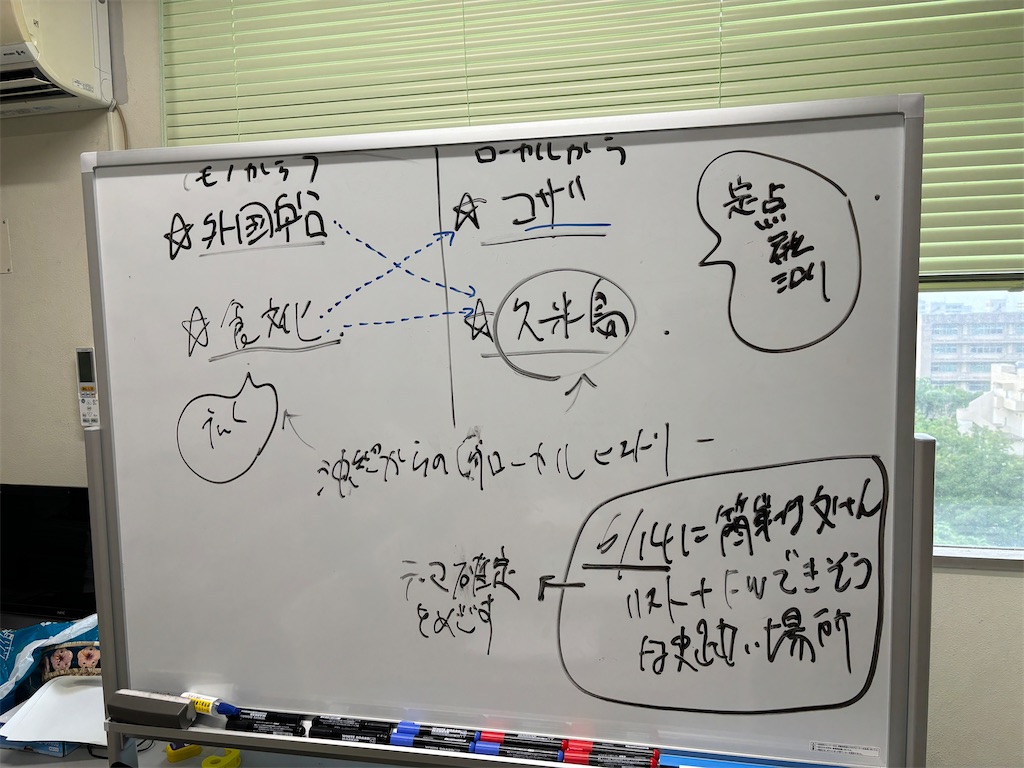 モノから
☆外国船
☆食文化
ローカルから
☆コザ
☆久米島
定点
観測
沖縄からのグローカルヒストリー
テーマ確定
をめざす
6/14に簡単な文けん
リスト+FWできそう
な史跡 場所